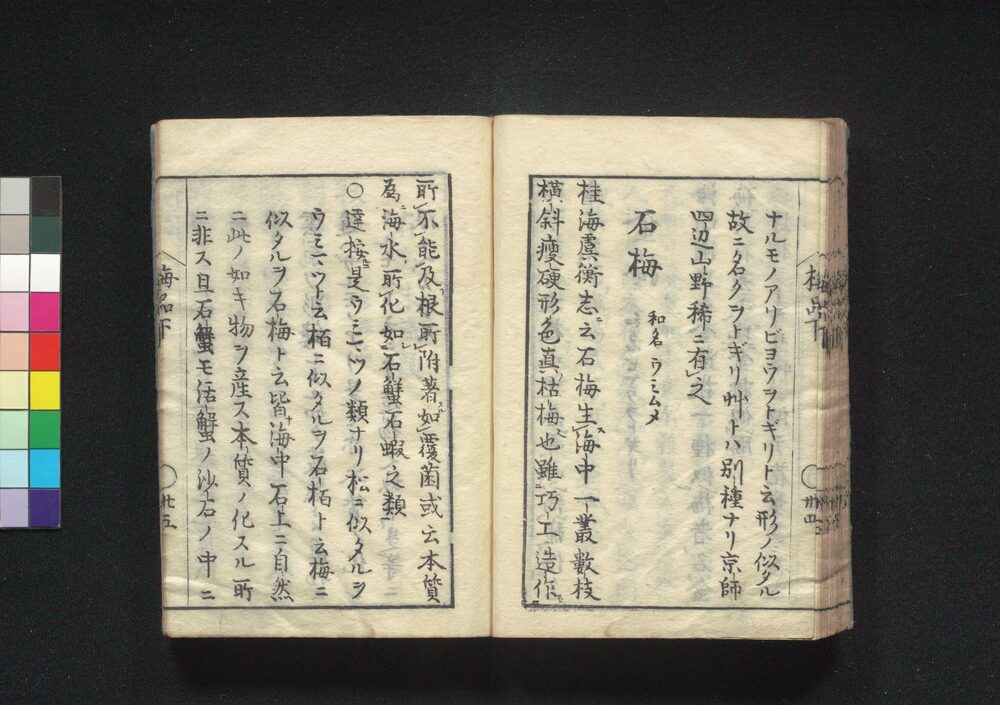 ナルモノアリビヨウヲトギリト云形ノ似タル
故ニ名クヲトギリ艸トハ別種ナリ京師
四辺山野稀ニ有之
石梅 和名 ウミムメ
桂海虞衡志ニ云石梅生海中一叢數枝
横斜瘦硬形色真枯梅也雖巧工造作
所不能及根所附著如覆菌或云本質
爲海水所化如石蟹石蝦之類
〇達按ニ是ウミマツノ類ナリ松ニ似タルヲ
ウミマツト云栢ニ似タルヲ石栢ト云梅ニ
似タルヲ石梅ト云皆海中石上ニ自然
ニ此ノ如キ物ヲ産ス本質ノ化スル所
ニ非ス且石蟹モ活蟹ノ沙石ノ中ニ
梅品下
廿四
梅品下
廿五